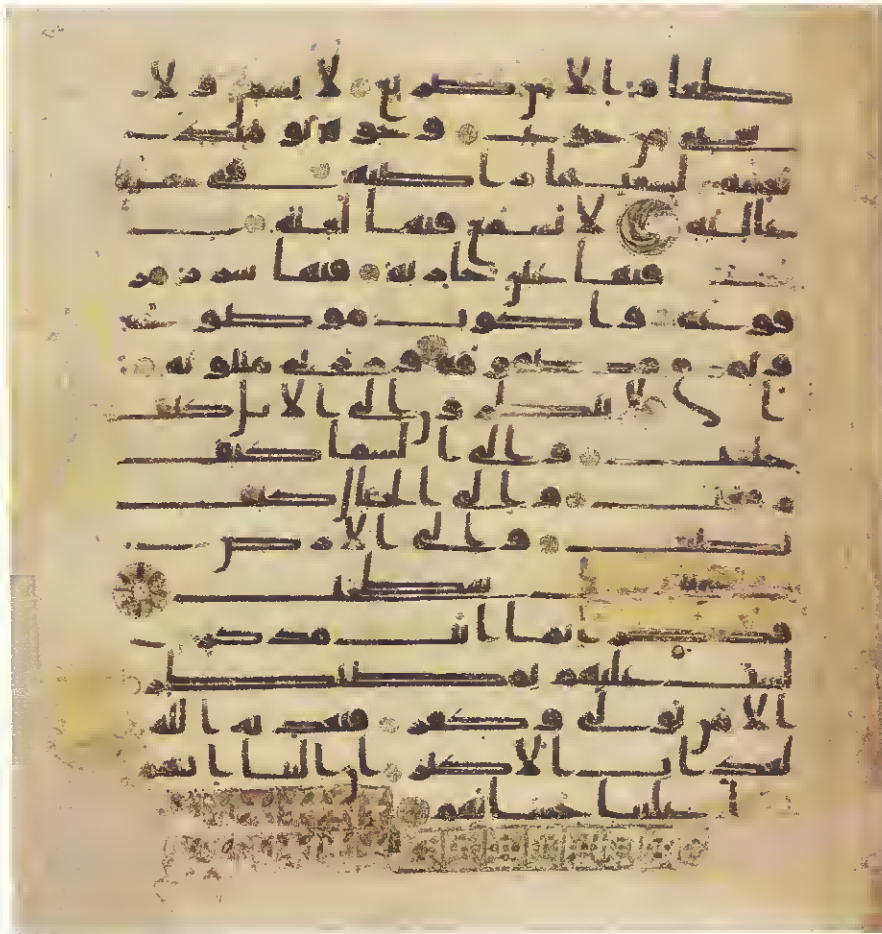 طعام الا من ضريع لا يسمن ولا
يغني من جوع وجوه يومئذ
ناعمة لسعيها راضية في جنة
عالية لا تسمع فيها لغية
فيها عين جارية فيها سرر مر
فوعة واكواب موضوعة
ونمرق مصفوفة وزرابي مبثوثة
افلا ينظرون الى الابل كيف
خلقت والى السما كيف
رفعت والى الجبال كيف
نصبت والى الارض
كيف سطحت
فذكر انما انت مذكر
لست عليهم بمصيطر
الا من تولى وكفر فيعذبه الله
العذاب الاكبر ان الينا ايابهم
ثم ان علينا حسابهم